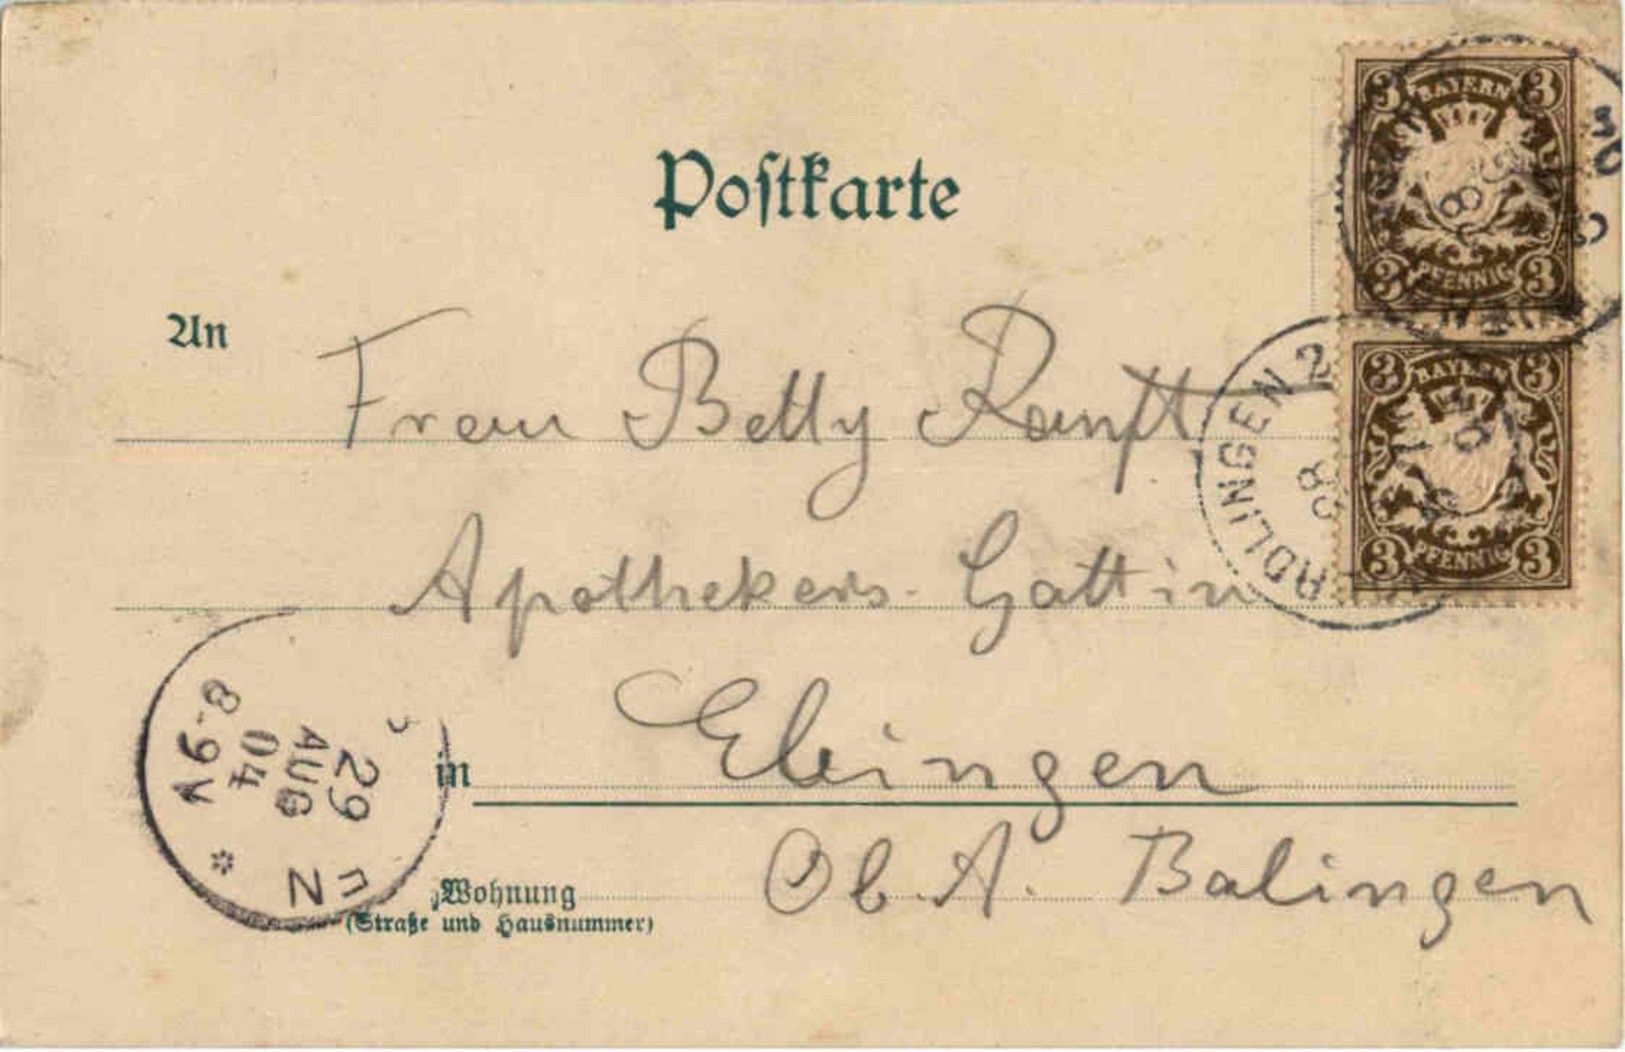 Postkarte
3 BAYERN 3
3 PFENNIG 3
An
Frau Betty Ranft
3 BAYERN 3
3 PFENNIG 3
RDLINGEN 2
28
Apothekers-Gattin
in Ebingen
29
AUG
04
8-9V
Ob. A. Balingen
Wohnung
(Straße und Hausnummer)